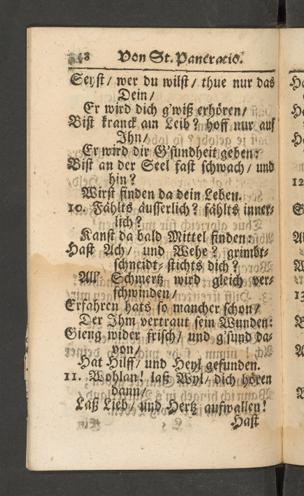 348 Von St. Pancratio.
Seyst / wer du wilst / thue nur das
Dein /
Er wird dich g'wiß erhören /
Bist kranck am Leib? hoff nur auf
Ihn /
Er wird dir G'sundheit geben:
Bist an der Seel fast schwach / und
hin?
Wirst finden da dein Leben.
10. Fählts äusserlich? fählts inner-
lich?
Kanst da bald Mittel finden:
Hast Ach / und Wehe? grimbt-
schneidt- stichts dich?
All' Schmertz wird gleich ver-
schwinden /
Erfahren hats so mancher schon /
Der Ihm vertraut sein Wunden:
Gieng wider frisch / und g'sund da-
von /
Hat Hilff / und Heyl gefunden.
11. Wohlan! laß Wyl / dich hören
dann /
Laß Lieb / und Hertz aufwallen!
Hast